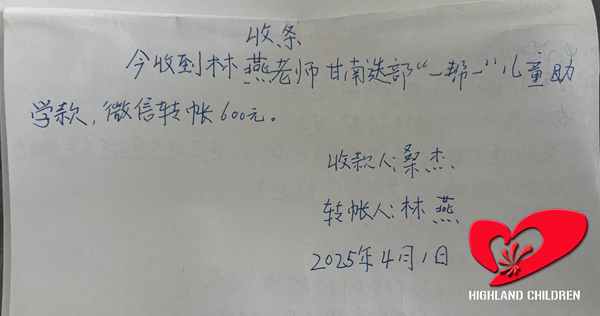 收条
今收到林燕老师甘南迭部“一帮一”儿童助
学款，微信转帐600元。
收款人：桑杰
转帐人：林燕
2025年4月1日
HIGHLAND CHILDREN